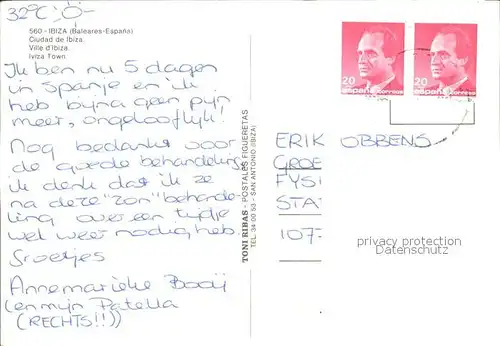 32°C
560 - IBIZA (Baleares-España)
Ciudad de Ibiza.
Ville d'Ibiza.
Iviza Town.
Ik ben nu 5 dagen
in Spanje en ik
heb bijna geen pijn
meer, ongelooflijk!
Nog bedankt voor
de goede behandeling
ik denk dat ik ze
na deze "zon" behande-
ling over een tijdje
wel weer nodig heb
Groetjes
Annemarieke Booij
(en mijn Patella
(RECHTS!!))
TONI RIBAS - POSTALES FIGUERETAS
TEL. 34 00 53 - SAN ANTONIO (IBIZA)
20
españa correos
20
españa correos
ERIK OBBENS
GROE
FYSI
STA
107
privacy protection
Datenschutz